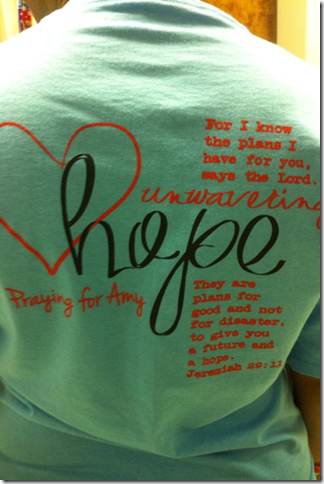 For I know
the plans I
have for you,
says the Lord.
unwavering
hope
Praying for Amy
They are
plans for
good and not
for disaster,
to give you
a future and
a hope.
Jeremiah 29:11